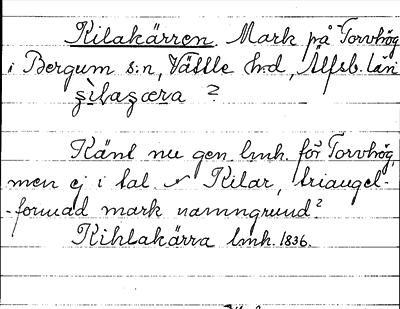 Kilakärren. Mark på Torvhög
i Bergum s:n, Vättle hd, Älfsb. län
ʂìlaʂæra ?
Känt nu gen. lmk. för Torvhög,
men ej i tal. Kilar, triangel-
-formad mark namngrund?
Kihlakärra lmk. 1836.